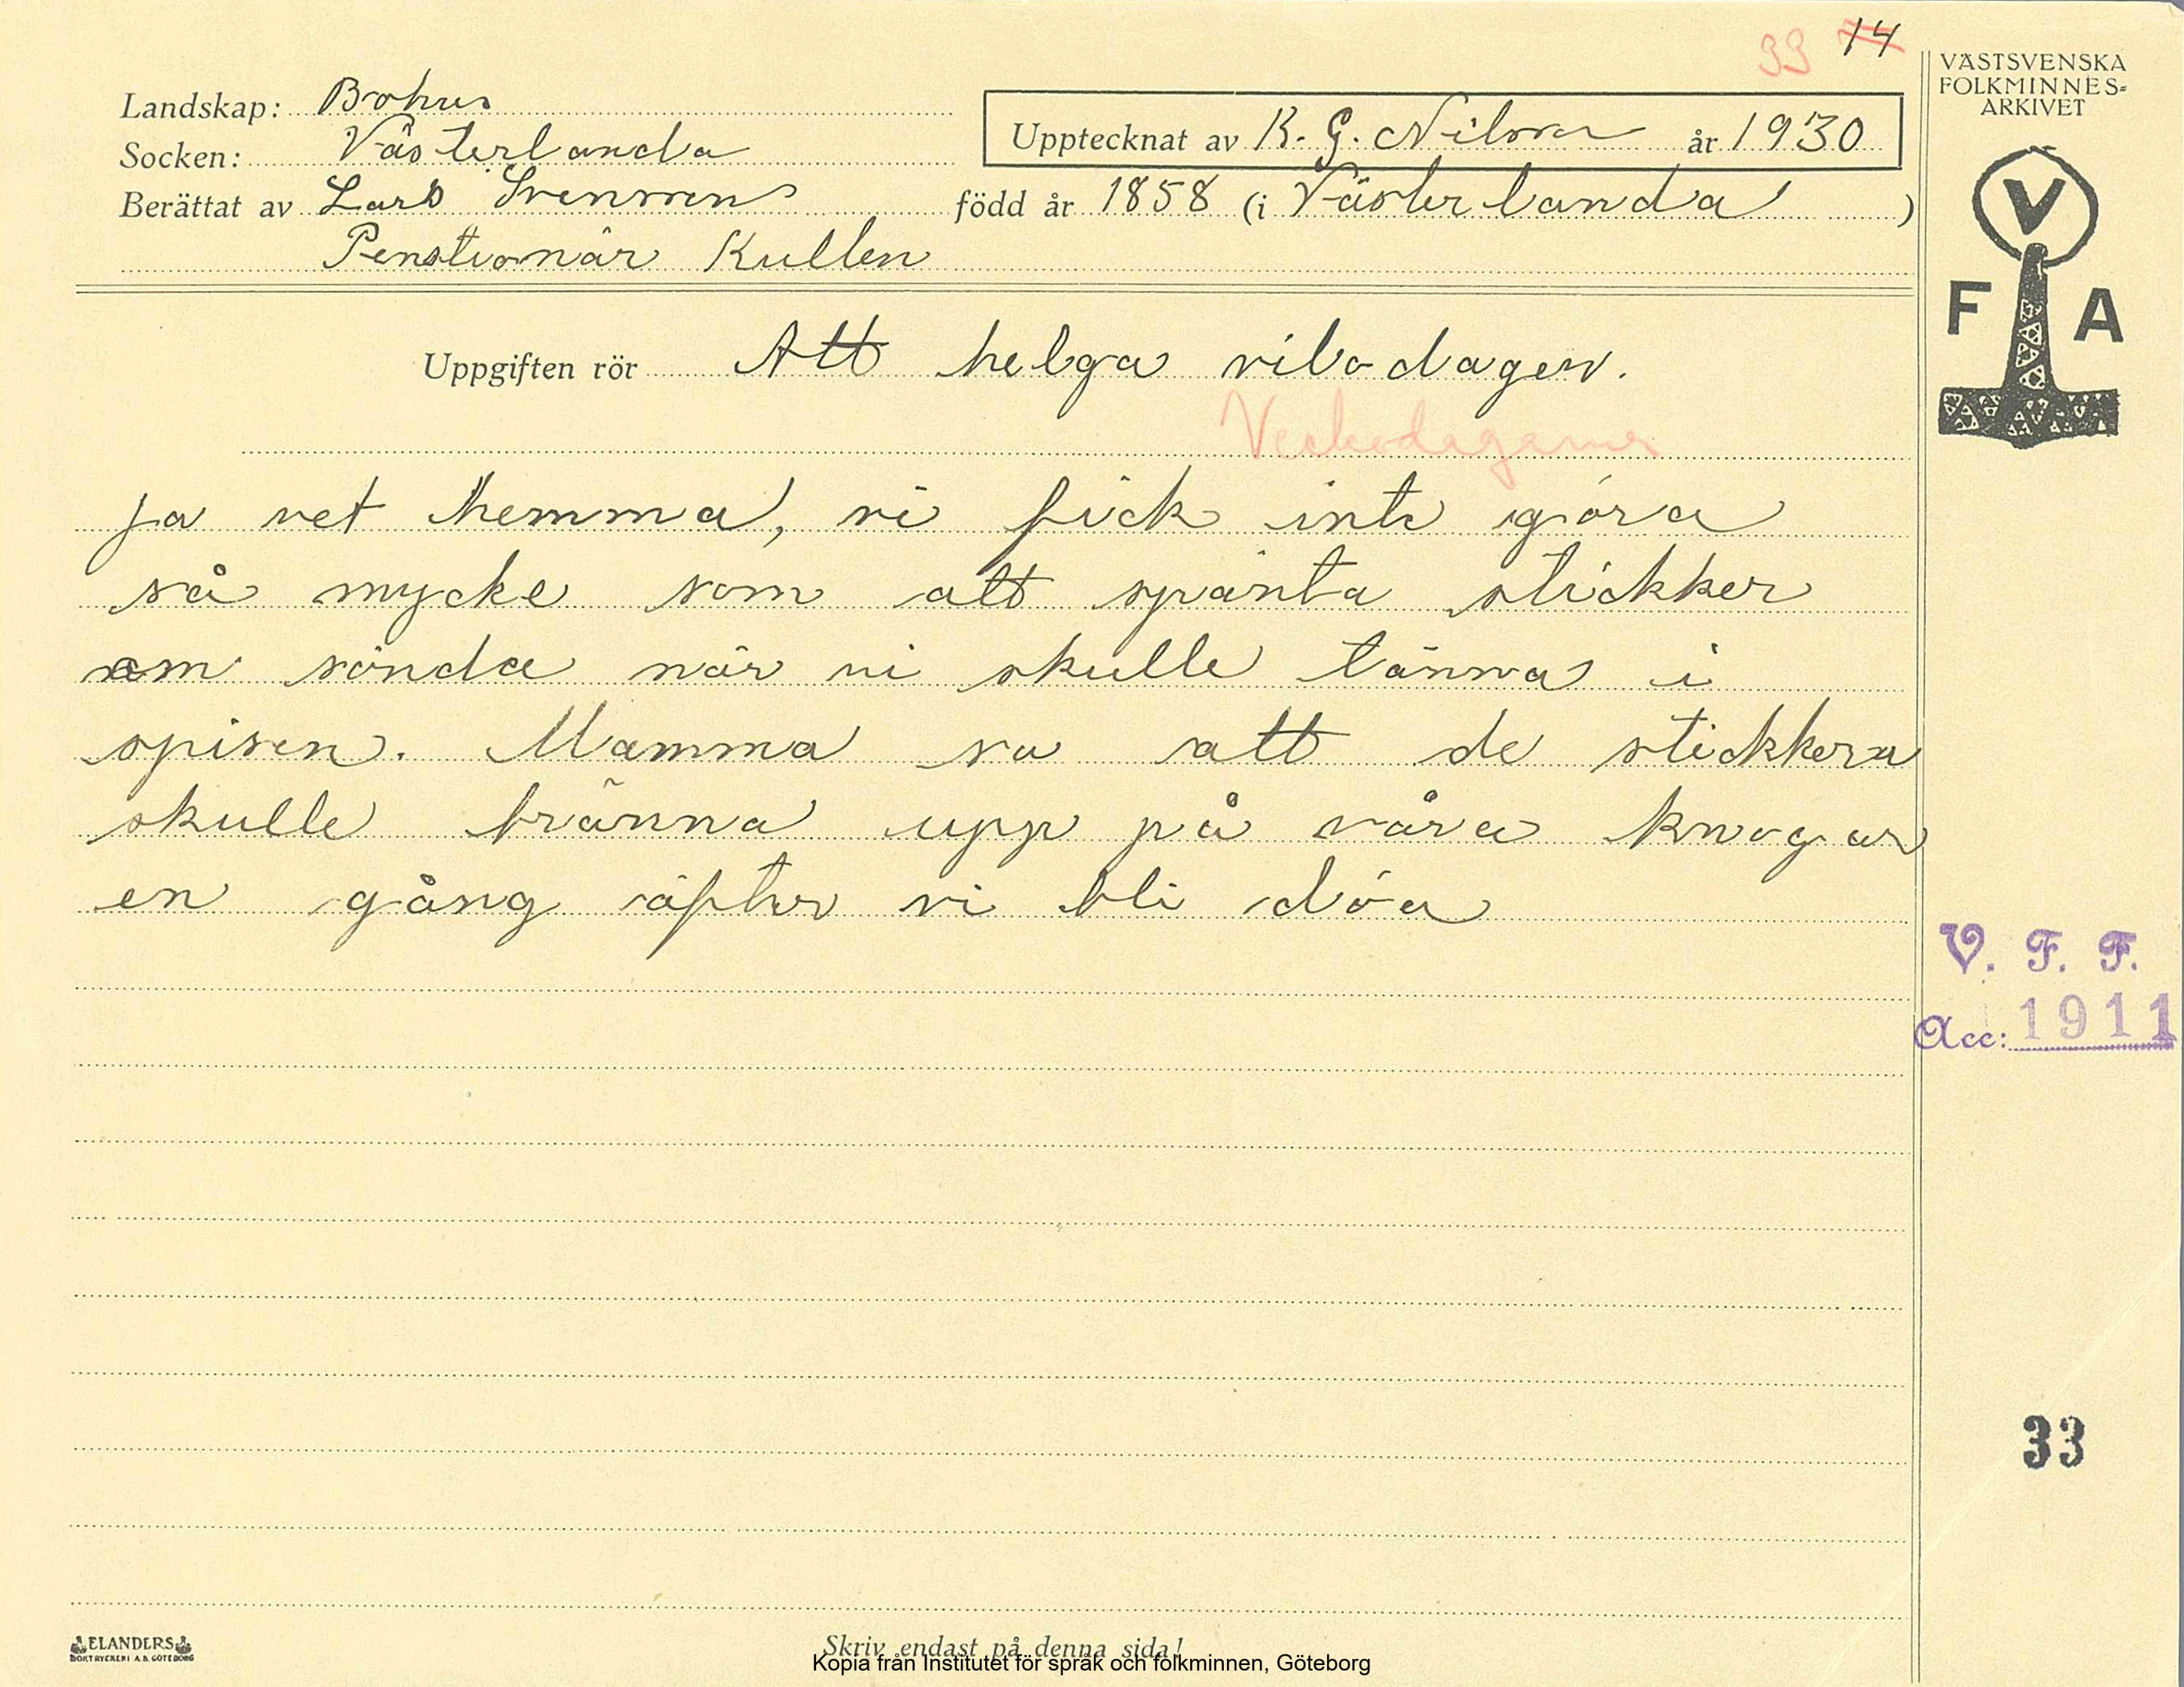 33 14
VÄSTSVENSKA
FOLKMINNES-
ARKIVET
Landskap: Bohus
Socken: Västerlanda
Upptecknat av K. G. Nilson år 1930
Berättat av Lars Svensson född år 1858 (i Västerlanda)
Penstionär Kullen
V
F A
Uppgiften rör Att helga vilodagen.
Veckodagarna
Ja vet hemma, vi fick inte göra
så mycke som att spänta stickker
om sönda när vi skulle tänna i
spisen. Mamma sa att de stickkera
skulle bränna upp på våra knogar
en gång äpter vi bli döa
V. F. F.
Acc: 1911
33
ELANDERS
BOKTRYCKERI A.B. GÖTEBORG
Skriv endast på denna sida!
Kopia från Institutet för språk och folkminnen, Göteborg